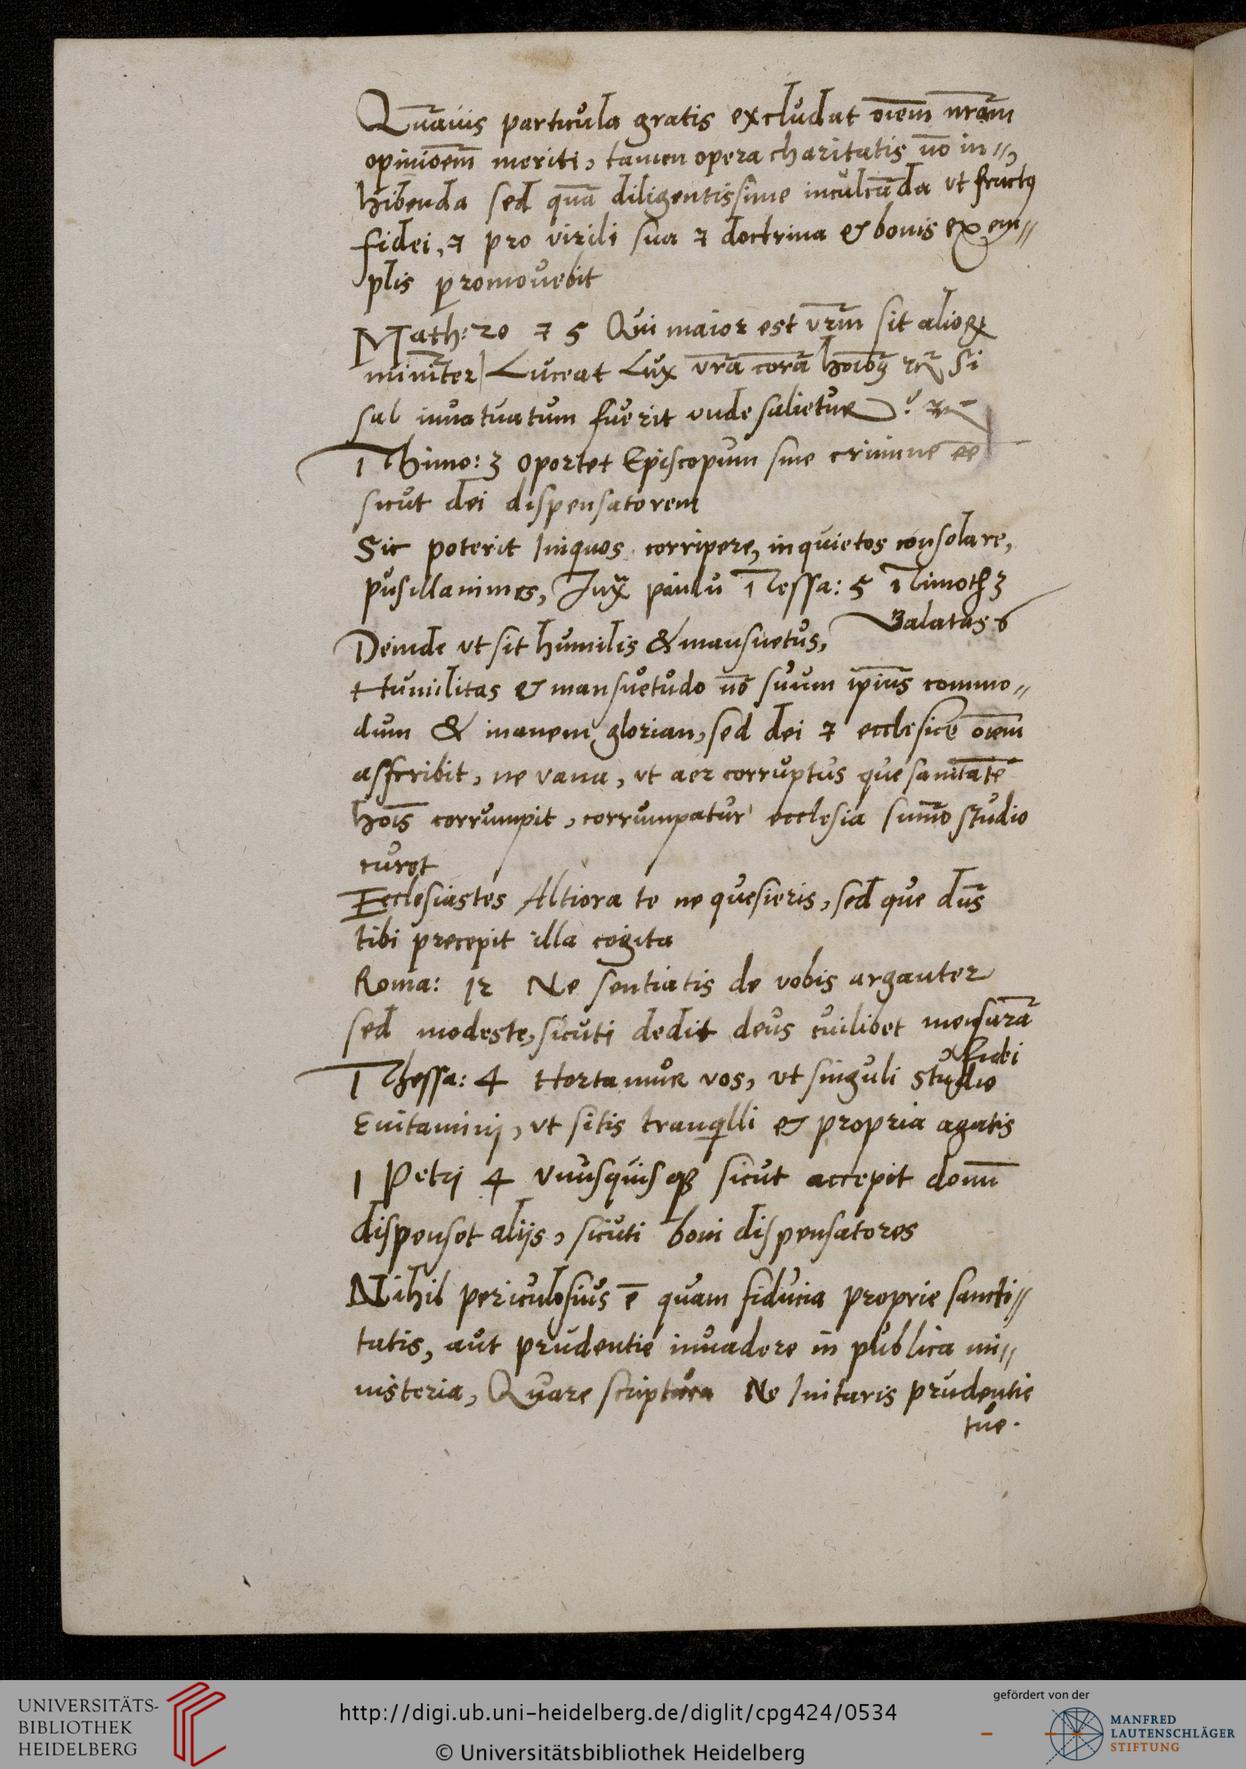 Quāuis particula gratis excludat oīem nrām
opinioēm meriti, tamen opera charitatis nō in//,
hibenda sed quā diligentissime inculcāda ut fructꝰ
fidei, ⁊ pro virili sua ⁊ doctrina & bonis exem//
plis promouebit
Math: 20 ⁊ 5 Qui maior est vrm̄ sit alioꝝ
minīter| Luceat Lux vrā corā hoībꝫ Si
sal infatuatum fuerit unde salietur ?
1 Thimo: 3 oportet Episcopum sine crimine ēe
sicut dei dispensatorem
Sic poterit Iniquos corripere, inquietos consolare,
pusillanimes, Iux paulū 1 Tessa: 5 1 Timoth 3
Galatas 6
Deinde ut sit humilis & mansuetus,
Humilitas & mansuetudo nō suum ipīus commo//
dum & inanem glorian, sed dei ⁊ ecclesiȩ oīem
asscribit, ne vana, ut aer corruptus que sanitatē
hoīs corrumpit, corrumpatur ecclesia sum̄o studio
curet
Ecclesiastes Altiora te ne quesieris, sed que dūs
tibi precepit illa cogita
Roma: 12 Ne sentiatis de vobis arganter
sed modeste, sicuti dedit deus cuilibet mensurā
fidei
1 Thessa: 4 Hortamur vos, ut singuli studio
Enitamini, ut sitis tranqilli & propria agatis
1 Petri 4 vnusquisqꝫ sicut accepit donū
dispenset aliis, sicuti boni dispensatores
Nihil periculosius ē quam fiducia proprie sancti//
tatis, aut prudentie inuadere in publica mi//
nisteria, Quare scriptura Ne Initaris prudentie
tue.
UNIVERSITÄTS-
BIBLIOTHEK
HEIDELBERG
http://digi.ub.uni-heidelberg.de/diglit/cpg424/0534
© Universitätsbibliothek Heidelberg
gefördert von der
MANFRED
LAUTENSCHLÄGER
STIFTUNG